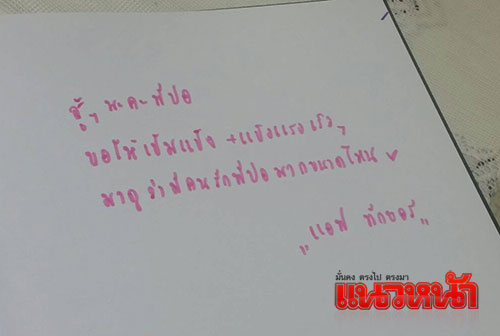 สู้ๆ นะคะพี่ปอ
ขอให้เข้มแข็ง +แข็งแรงเร็วๆ
มาดูว่ามีคนรักพี่ปอมากขนาดไหน
"แอฟ ทักษอร"
มั่นคง ตรงไป ตรงมา
แนวหน้า